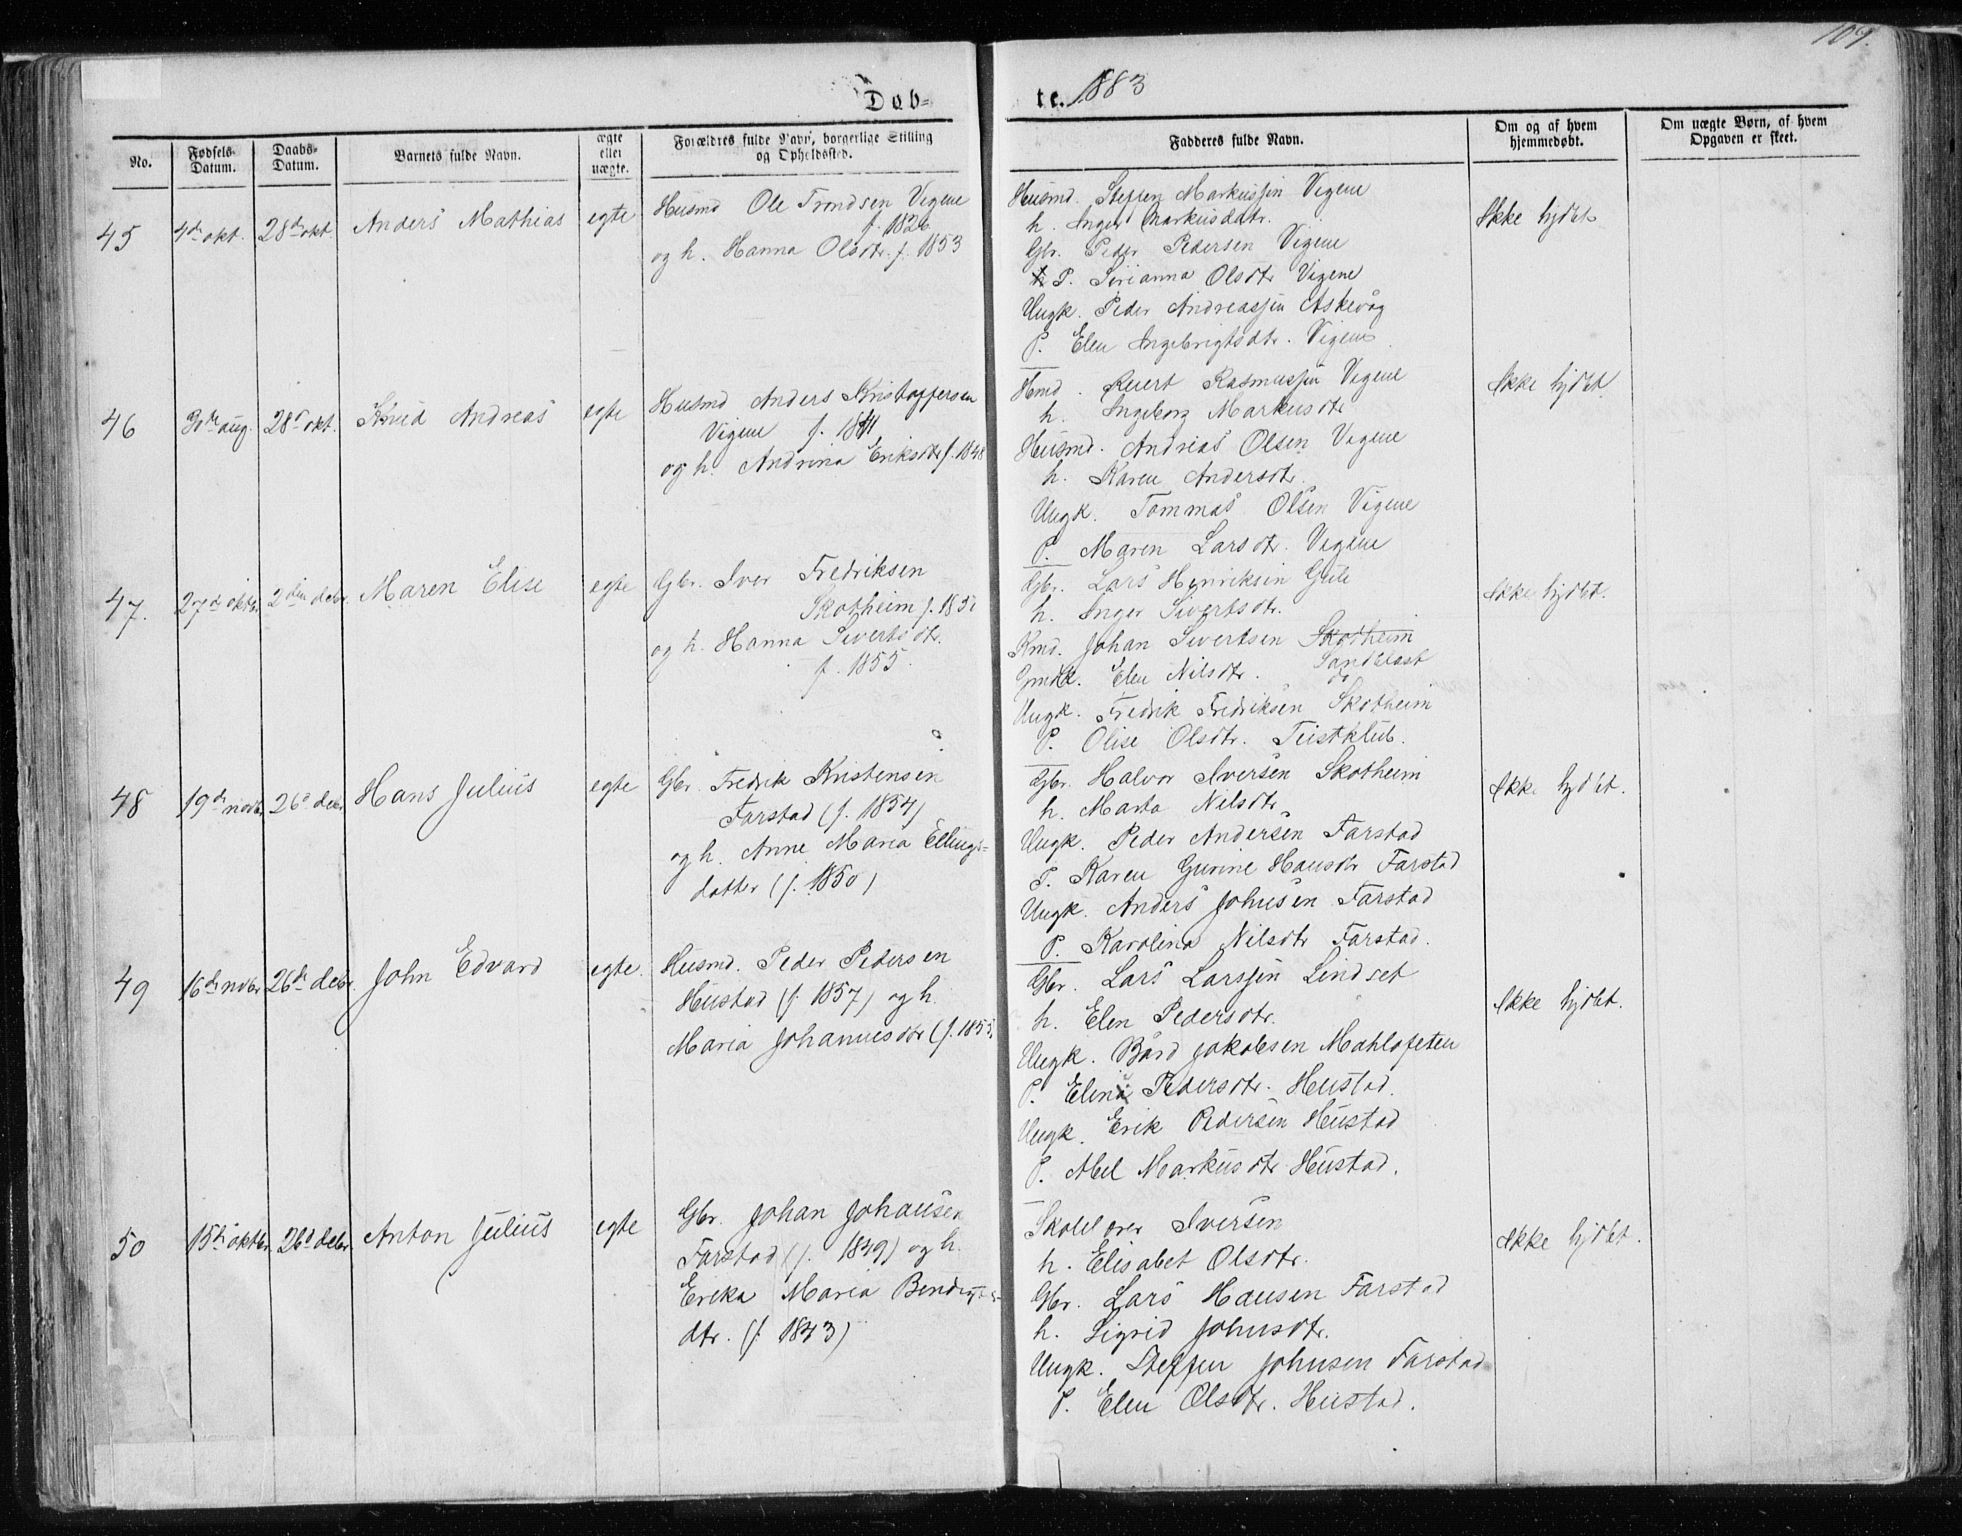 109.
Døb-
te. 1883
No.
Fødsels-
Datum.
Daabs-
Datum.
Barnets fulde Navn.
ægte
eller
uægte.
Forældres fulde Navn, borgerlige Stilling
og Opholdssted.
Fadderes fulde Navn.
Om og af hvem
hjemmedøbt.
Om uægte Børn, af hvem
Opgaven er skeet.
45
4de okt.
28de okt.
Anders Mathias
egte
Husmd Ole Trondsen Vigene
f. 1826
og h. Hanna Olsdtr. f. 1853
Husmd. Steffen Markussen Vigene
h. Inger Markusdatr.
Gbr. Peder Pedersen Vigene
P. Sirianna Olsdtr Vigene
Ungk. Peder Andreassen Askevåg
P. Elen Ingebrigtsdtr. Vigene
Ikke hjdbt.
46
30te aug.
28de okt.
Knud Andreas
egte
Husmd Anders Kristoffersen
Vigene f. 1841
og h. Andrina Eriksdtr f. 1848
Hmd. Reiert Rasmussen Vigene
h. Ingeborg Markusdtr
Husmd. Andreas Olsen Vigene
h. Karen Andersdtr.
Ungk. Tommas Olsen Vigene
P. Maren Larsdtr. Vigene
Ikke hjdbt
47.
27de oktbr.
2den debr.
Maren Elise
egte
Gbr. Iver Fredriksen
Skotheim f. 185
og h. Hanna Sivertsdtr.
f. 1855.
Gbr. Lars Henriksen Gule
h. Inger Sivertsdtr.
Kmd. Johan Sivertsen Skotheim
Sandblast
Gmdk. Elen Nilsdtr. do
Ungk. Fredrik Fredriksen Skotheim
P. Olise Olsdtr. Teistklub.
Ikke hjdbt.
48
19de novbr.
26d debr.
Hans Julius
egte
Gbr. Fredrik Kristensen
Farstad (f. 1854)
og h. Anne Maria Ellings-
datter (f. 1850)
Gbr. Halvor Iversen Skotheim
h. Marta Nilsdtr
Ungk. Peder Andersen Farstad
P. Karen Gurine Hansdtr Farstad
Ungk. Anders Johnsen Farstad
P. Karolina Nilsdtr Farstad.
Ikke hjdbt.
49
16de novbr.
26de debr.
John Edvard
egte.
Husmd. Peder Pedersen
Hustad (f. 1857) og h.
Maria Johannesdtr (f. 1855
Gbr. Lars Larssen Lindset
h. Elen Pedersdtr.
Ungk. Bård Jakobsen Mahlofeten
P. Elen Pedersdtr. Hustad.
Ungk. Erik Pedersen Hustad
P. Abel Markusdtr Hustad.
Ikke hjdbt.
50
15de oktbr.
26d debr.
Anton Julius
egte
Gbr. Johan Johansen
Farstad (f. 1849) og h.
Erika Maria Bendigts-
dtr. (f. 1843)
Skolelærer Iversen
h. Elisabet Olsdtr.
Gbr. Lars Hansen Farstad
h. Sigrid Johnsdtr.
Ungk. Steffen Johnsen Farstad
P. Elen Olsdtr. Hustad.
Ikke hjdbt.